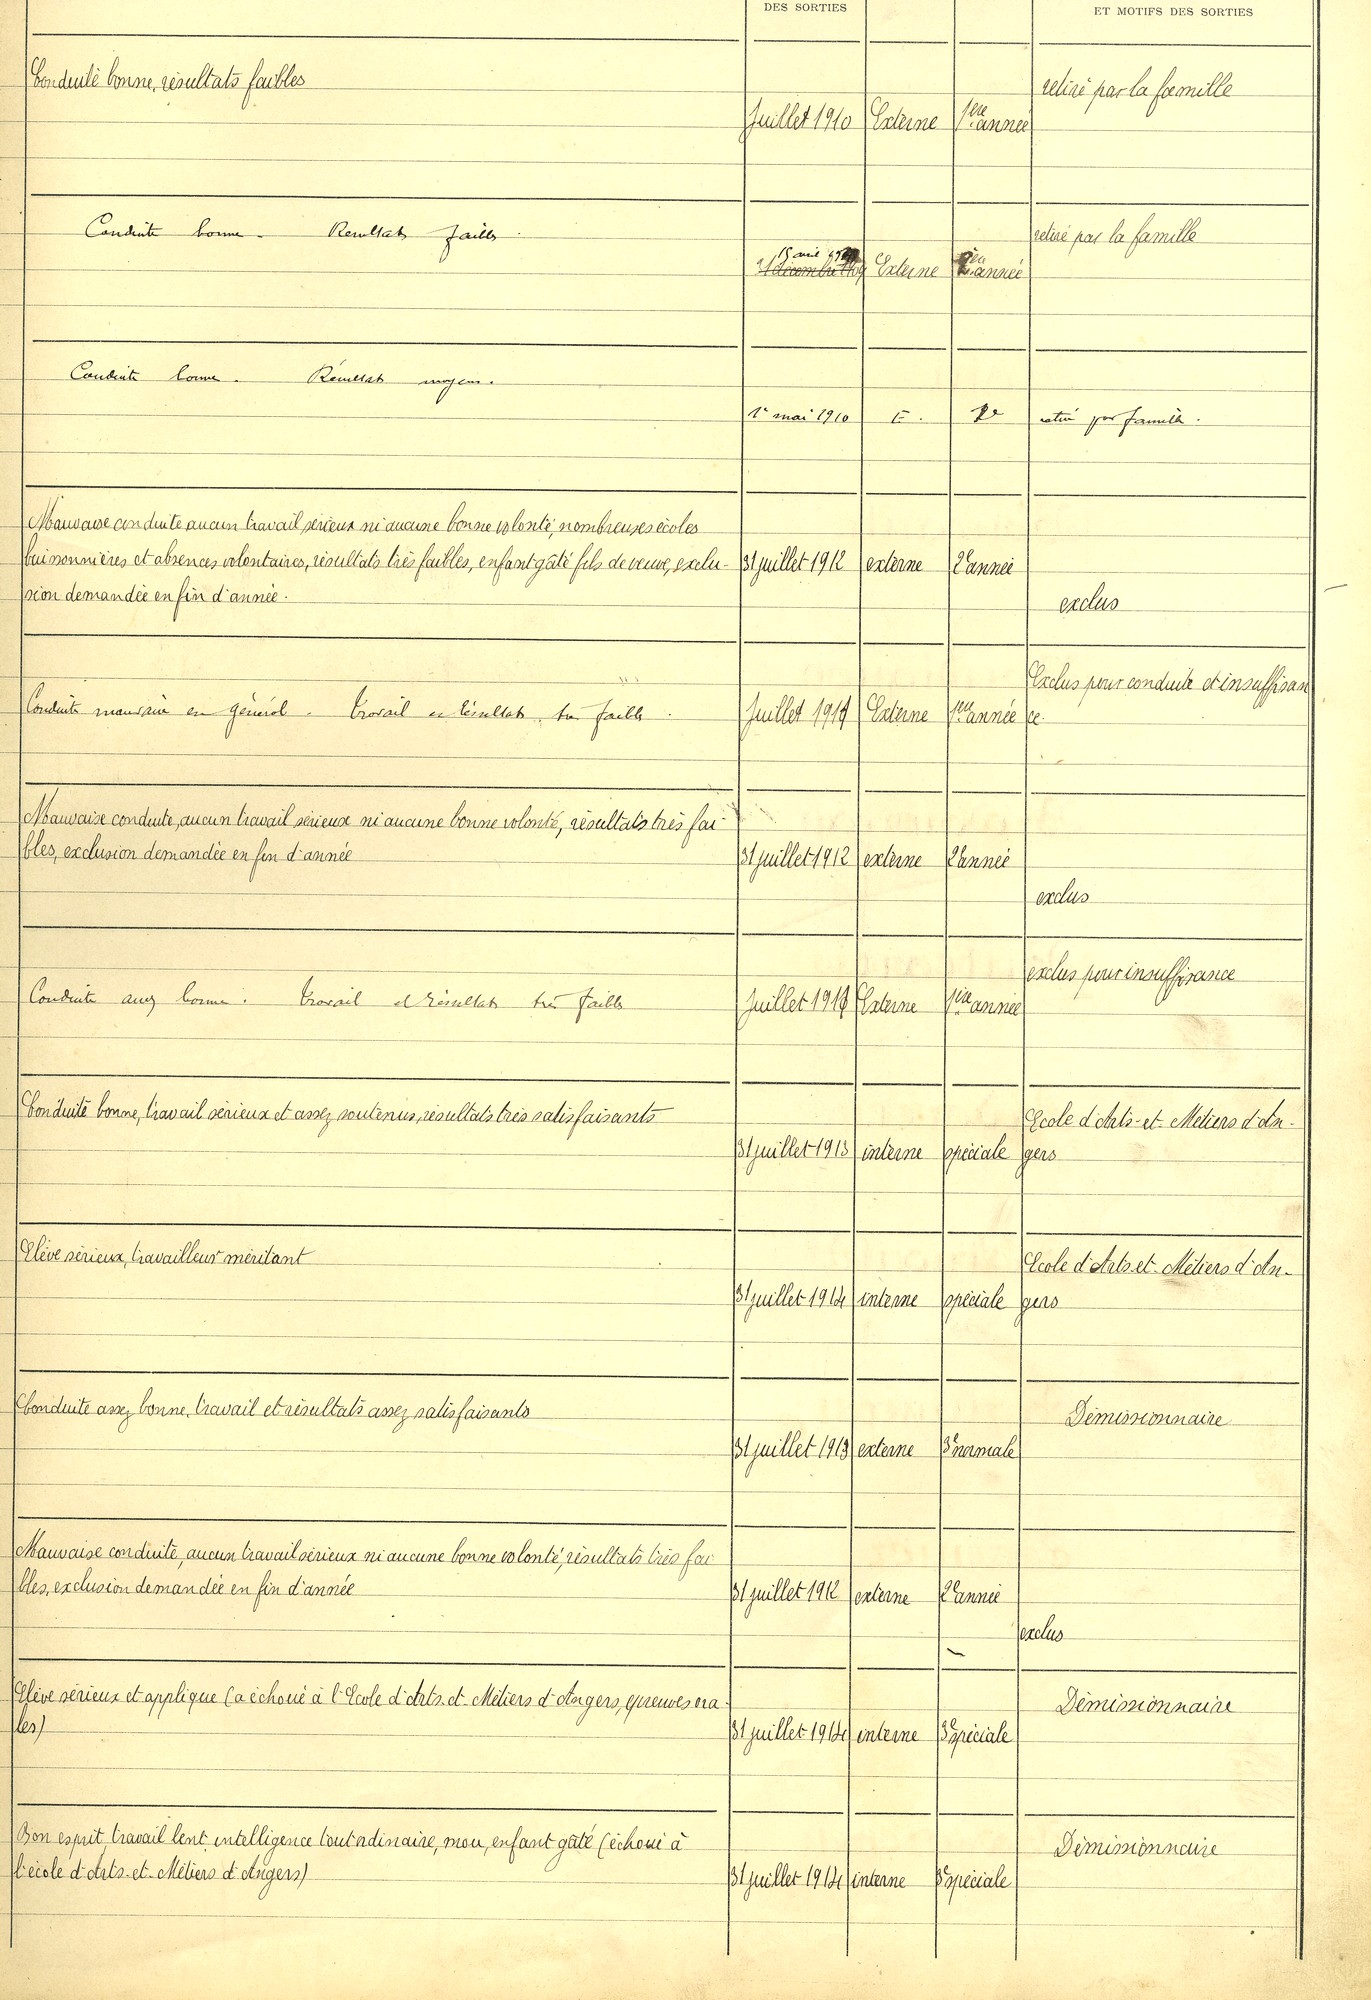 DES SORTIES
ET MOTIFS DES SORTIES
Conduite bonne, résultats faibles
retiré par la famille
Juillet 1910 Externe 1ère année
Conduite bonne - Résultats faibles.
retiré par la famille
15 avril
31 décembre 1909 Externe année
Conduite bonne. Résultats moyens.
1er mai 1910 E. retiré par famille.
Mauvaise conduite aucun travail sérieux ni aucune bonne volonté, nombreuses écoles
buissonnières et absences volontaires, résultats très faibles, enfant gâté fils de veuve, exclu-
31 juillet 1912 externe 2e année
sion demandée en fin d'année.
exclus
Exclus pour conduite et insuffisan
Conduite mauvaise en général. Travail et résultats très faibles.
Juillet 1911 Externe 1ère année ce.
Mauvaise conduite, aucun travail sérieux ni aucune bonne volonté, résultats très fai-
bles, exclusion demandée en fin d'année
31 juillet 1912 externe 2e année
exclus
exclus pour insuffisance
Conduite assez bonne. Travail et résultats très faibles
Juillet 1911 Externe 1ière année
Conduite bonne, travail sérieux et assez soutenus, résultats très satisfaisants
Ecole d'Arts-et-Métiers d'An-
31 juillet 1913 interne spéciale gers
Elève sérieux, travailleur méritant
Ecole d'Arts-et-Métiers d'An-
31 juillet 1914 interne spéciale gers
Conduite assez bonne, travail et résultats assez satisfaisants
Démissionnaire
31 juillet 1913 externe 3e normale
Mauvaise conduite, aucun travail sérieux ni aucune bonne volonté, résultats très fai-
bles, exclusion demandée en fin d'année
31 juillet 1912 externe 2e année
exclus
Elève sérieux et appliqué (a échoué à l'Ecole d'Arts-et-Métiers d'Angers, épreuves ora-
les)
Démissionnaire
31 juillet 1914 interne 3e spéciale
Bon esprit, travail lent intelligence tout ordinaire, mou, enfant gâté (échoué à
l'école d'Arts-et-Métiers d'Angers)
Démissionnaire
31 juillet 1914 interne 3e spéciale